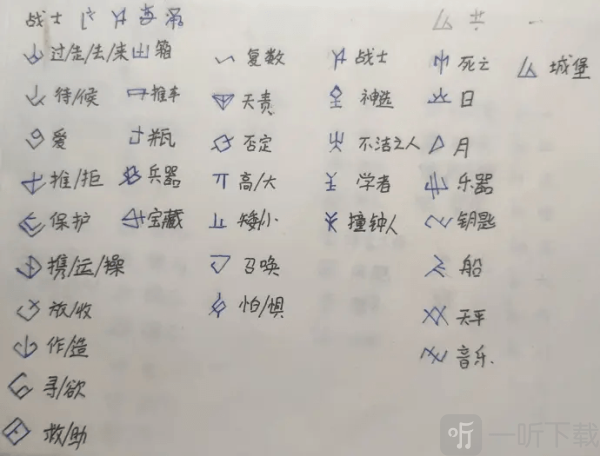 战士
过/走/去/来 箱 复数 战士 死亡 城堡
待/候 推车 天责 神选 日
爱 瓶 否定 不洁之人 月
推/拒 兵器 高/大 学者 乐器
保护 宝藏 矮/小 撞钟人 钥匙
携/运/操 召唤 船
放/收 怕/惧 天平
作/造 音乐
寻/欲
救/助
听 一听下载